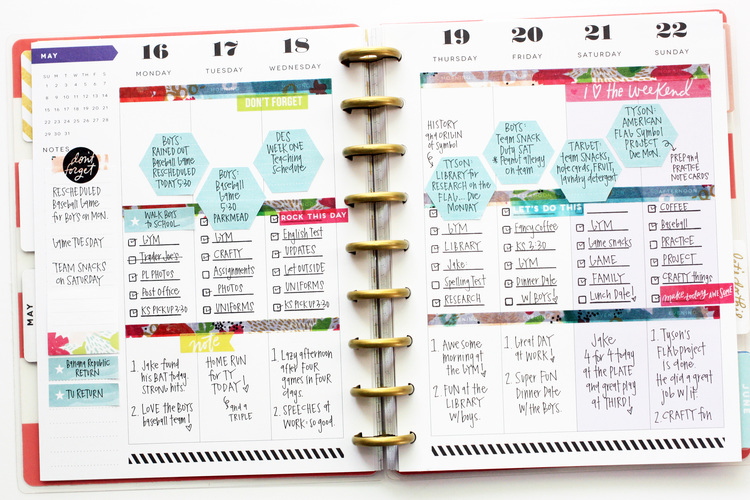 MAY
SU M T W T F S
1 2 3 4 5 6 7
8 9 10 11 12 13 14
15 16 17 18 19 20 21
22 23 24 25 26 27 28
29 30 31
NOTES
don't
forget
RESCHEDULED
Baseball Game
for Boys on Mon.
Game TUESDAY
TEAM SNACKS
on SATURDAY
Banana Republic
RETURN
TJ RETURN
MAY
16
MONDAY
BOYS'
RAINED OUT
Baseball Game
RESCHEDULED
TODAY 5:30
WALK BOYS
to SCHOOL
GYM
Trader Joe's
PL PHOTOS
Post office
KS PICKUP 3:30
1. Jake found
his BAT today.
STRONG hits!
2. LOVE the BOYS
baseball team!
17
TUESDAY
BOYS:
Baseball
Game
5:30
PARKMEAD
GYM
CRAFTY
Assignments
PHOTOS
UNIFORMS
note
HOME RUN
for TY
TODAY
and a
TRIPLE
18
WEDNESDAY
DON'T FORGET
DES
WEEK ONE
Teaching
Schedule
ROCK THIS DAY
English Test
UPDATES
Let OUTSIDE
UNIFORMS
KS PICK UP 3:30
1. Lazy afternoon
after FOUR
games in FOUR
days.
2. SPEECHES at
WORK - so good.
19
THURSDAY
HISTORY
and ORIGIN
of Symbol
TYSON:
LIBRARY for
RESEARCH on the
FLAG... Due
MONDAY
GYM
LIBRARY
Jake:
Spelling Test
RESEARCH
1. Awesome
morning
at the
GYM
2. FUN at the
LIBRARY
w/boys.
20
FRIDAY
BOYS:
Team SNACK
Duty SAT
* Peanut allergy
on team
LET'S DO THIS
Fancy Coffee
KS 3:30
GYM
Dinner Date
w/ BOYS
1. Great DAY
at WORK
2. Super FUN
Dinner Date
w/the Boys.
21
SATURDAY
I ♡ the Weekend
TARGET:
Team SNACKS,
note cards, FRUIT,
laundry detergent
GYM
Game snacks
GAME
FAMILY
Lunch Date!
Jake
4 for 4 today
at the PLATE
and great play
at THIRD!
22
SUNDAY
TYSON:
AMERICAN
FLAG Symbol
PROJECT
Due Mon.
PREP and
PRACTICE
NOTE CARDS
AFTERNOON
COFFEE
Baseball
PRACTICE
PROJECT
CRAFTY things
1. Tyson's
FLAG project
is done.
He did a great
job w/it.
2. CRAFTY fun
JUNE